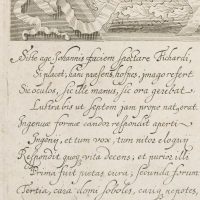 Siste age Johannis faciem spectare Pichardi,
Si placet, hanc praesens, hospes, imago refert.
Sic oculos, sic ille manus, sic ora gerebat
Lustra bis ut septem jam prope nat, erat.
Ingenuae formae candor respondit aperti
Ingenij, et tum vox, tum nitor eloquij
Respondit quoq, vita decens, et puriq illi
Prima fuit pietas cura; secunda forum
Tertia, cara domi soboles, cariq nepotes,